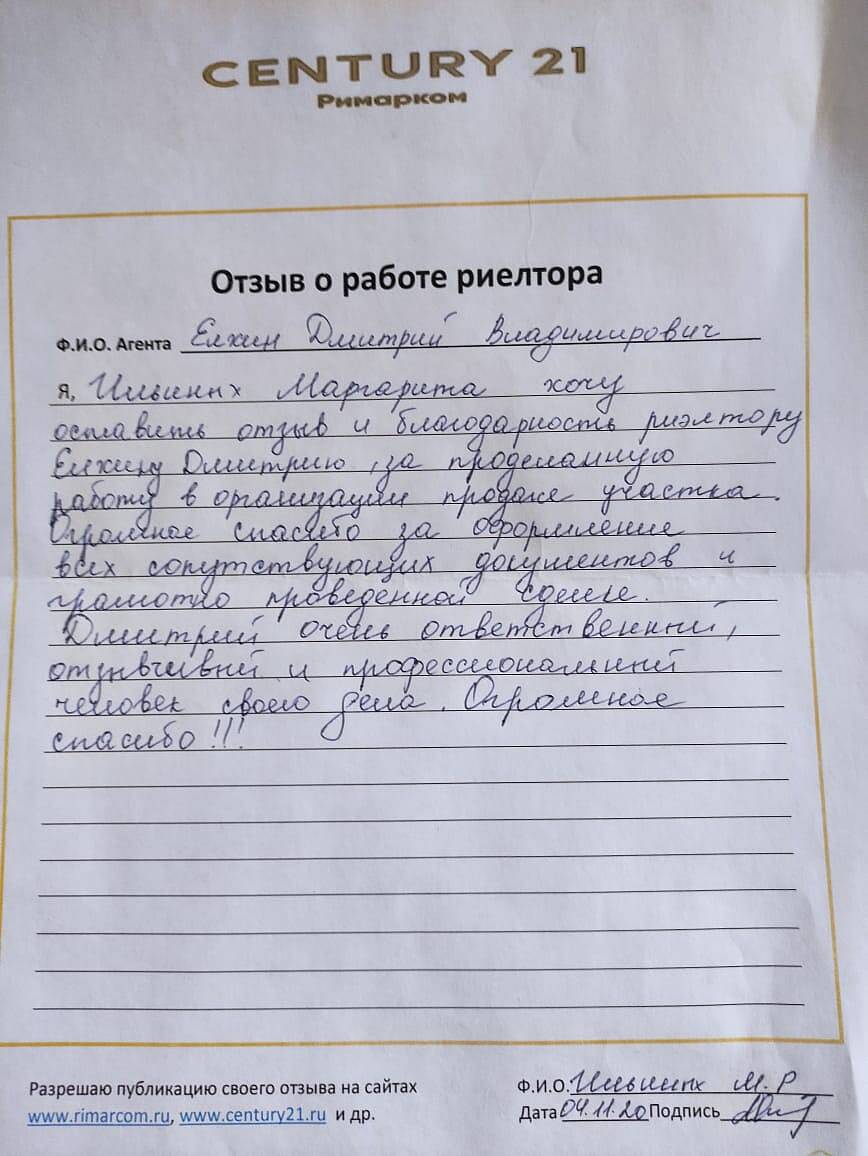 CENTURY 21
Римарком
Отзыв о работе риелтора
Ф.И.О. Агента Елхин Дмитрий Владимирович
Я, Ильиных Маргарита хочу
оставить отзыв и благодарность риэлтору
Елхину Дмитрию, за проделанную
работу в организации продаже участка.
Огромное спасибо за оформление
всех сопутствующих документов и
грамотно проведенной сделке.
Дмитрий очень ответственный,
отзывчивый и профессиональный
человек своего дела. Огромное
спасибо!!!
Разрешаю публикацию своего отзыва на сайтах
www.rimarcom.ru, www.century21.ru и др.
Ф.И.О. Ильиных М.Р
Дата 04.11.20 Подпись